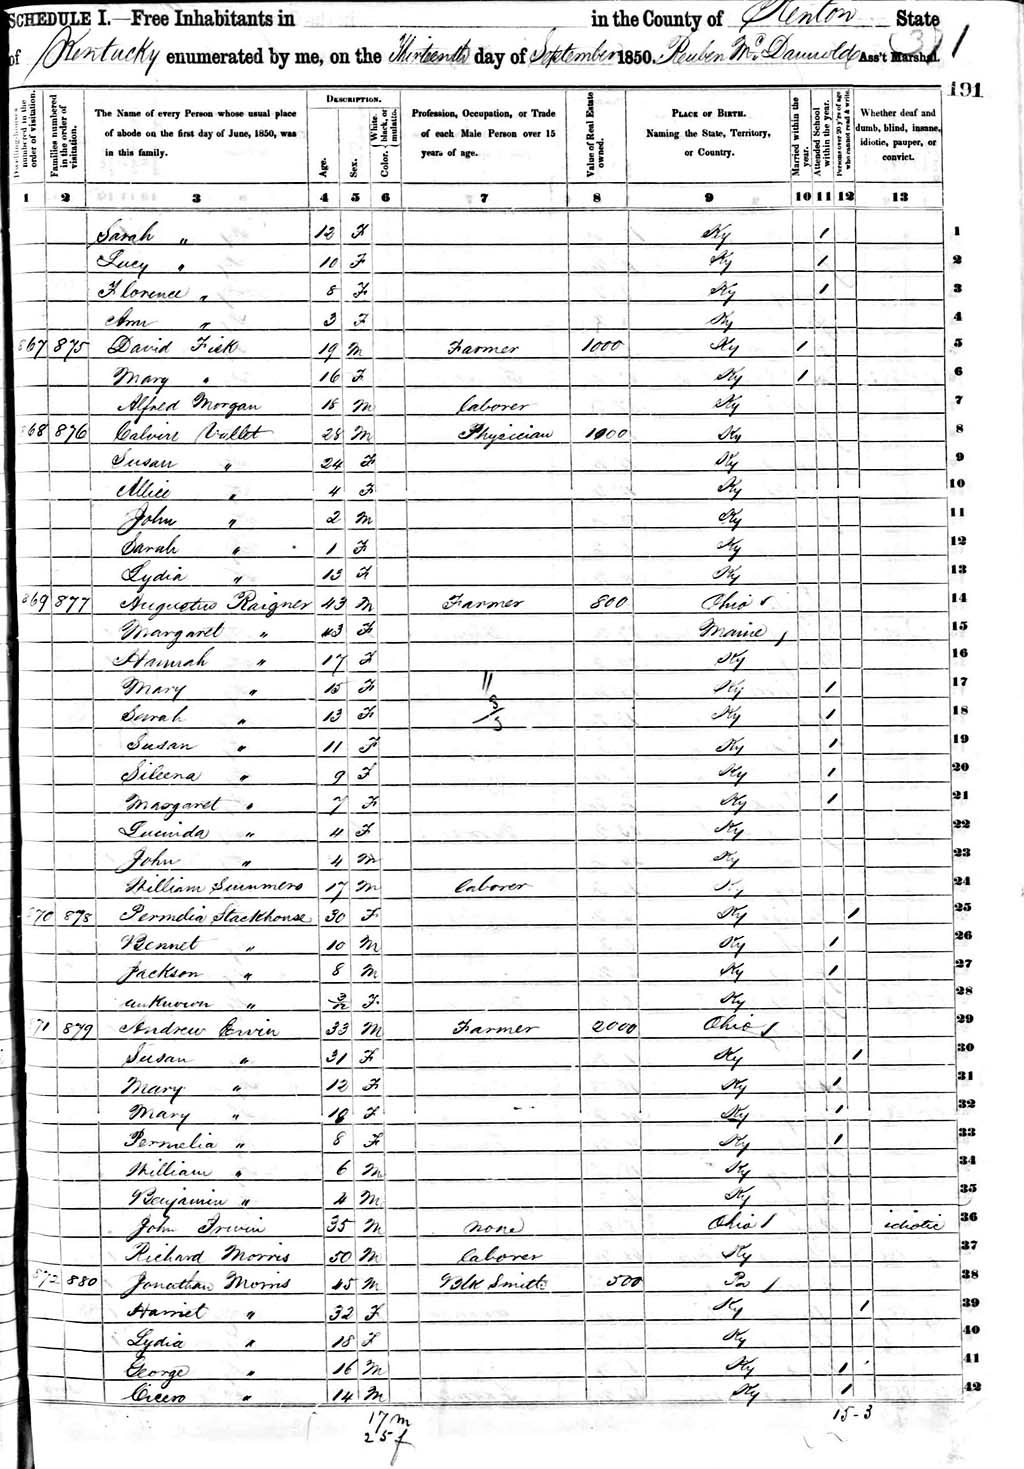 SCHEDULE I.—Free Inhabitants in in the County of Kenton State
of Kentucky enumerated by me, on the Thirteenth day of September 1850. Reuben Ass't Marshal.
(3) 1
191
Dwelling-houses numbered in the order of visitation.
Families numbered in the order of visitation.
The Name of every Person whose usual place of abode on the first day of June, 1850, was in this family.
DESCRIPTION.
Age.
Sex.
Color, White, black, or mulatto.
Profession, Occupation, or Trade of each Male Person over 15 years of age.
Value of Real Estate owned.
PLACE OF BIRTH. Naming the State, Territory, or Country.
Married within the year.
Attended School within the year.
Persons over 20 y'rs of age who cannot read & write.
Whether deaf and dumb, blind, insane, idiotic, pauper, or convict.
1 2 3 4 5 6 7 8 9 10 11 12 13
Sarah " 12 F Ky 1 1
Lucy " 10 F Ky 1 2
Florence " 8 F Ky 1 3
Ann " 3 F Ky 4
867 875 David Fisk 19 M Farmer 1000 Ky 1 5
Mary " 16 F Ky 1 6
Alfred Morgan 18 M laborer Ky 7
868 876 Calvin Vallet 28 M Physician 1000 Ky 8
Susan " 24 F Ky 9
Allice " 4 F Ky 10
John " 2 M Ky 11
Sarah " 1 F Ky 12
Lydia " 13 F Ky 13
869 877 Augustus Raigner 43 M Farmer 800 Ohio 14
Margaret " 43 F Maine 15
Hannah " 17 F Ky 16
Mary " 15 F Ky 1 17
Sarah " 13 F Ky 1 18
Susan " 11 F Ky 1 19
Sileena " 9 F Ky 1 20
Margaret " 7 F Ky 1 21
Lucinda " 4 F Ky 22
John " 4 M Ky 23
William Summers 17 M laborer Ky 24
870 878 Permelia Stackhouse 30 F Ky 1 25
Bennet " 10 M Ky 1 26
Jackson " 8 M Ky 1 27
unknown " F Ky 28
871 879 Andrew Erwin 33 M Farmer 2000 Ohio 29
Susan " 31 F Ky 1 30
Mary " 12 F Ky 1 31
Mary " 10 F Ky 1 32
Permelia " 8 F Ky 1 33
William " 6 M Ky 34
Benjamin " 4 M Ky 35
John Irwin 35 M none Ohio idiotic 36
Richard Morris 50 M laborer Ky 37
872 880 Jonathan Morris 45 M Blk Smith 500 Pa 38
Harriet " 32 F Ky 1 39
Lydia " 18 F Ky 40
George " 16 M Ky 1 41
Cicero " 14 M Ky 1 42
17 m 15-3
25 f